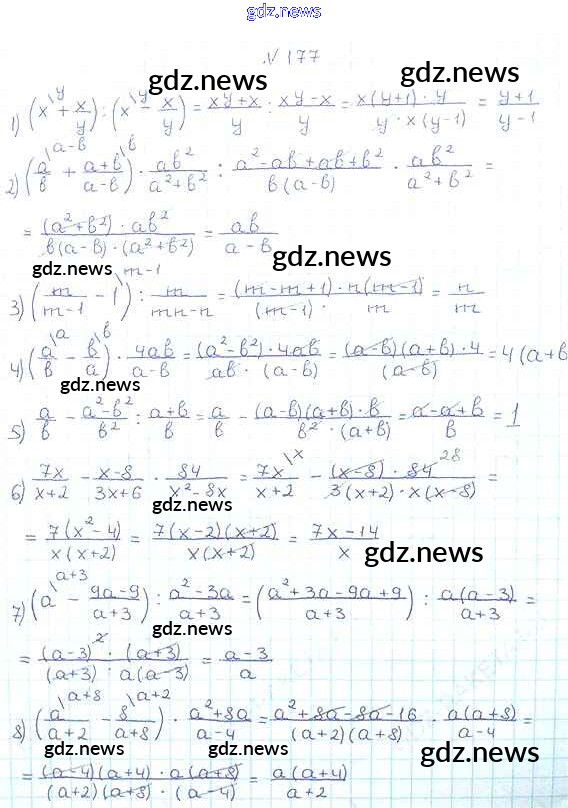 gdz.news
№ 177
gdz.news gdz.news
1) (x\y + x/y) : (x\y - x/y) = (xy+x)/y : (xy-x)/y = (x(y+1)·y)/(y·x(y-1)) = (y+1)/(y-1)
gdz.news
2) (a/b\a-b + (a+b)/(a-b)\b) · ab²/(a²+b²) : (a²-ab+ab+b²)/(b(a-b)) · ab²/(a²+b²) =
= ((a²+b²)·ab²)/(b(a-b)·(a²+b²)) = ab/(a-b)
gdz.news gdz.news
3) (m/(m-1) - 1\m-1) : m/(mn-n) = ((m-m+1)·n(m-1))/((m-1)·m) = n/m
gdz.news
4) (a/b\a - b/a\b) · 4ab/(a-b) = ((a²-b²)·4ab)/(ab·(a-b)) = ((a-b)(a+b)·4)/(a-b) = 4(a+b
gdz.news
5) a/b - (a²-b²)/b² : (a+b)/b = a/b - ((a-b)(a+b)·b)/(b²·(a+b)) = (a-a+b)/b = 1
6) 7x/(x+2) - (x-8)/(3x+6) · 84/(x²-8x) = 7x/(x+2)\x - ((x-8)·84 28)/(3(x+2)·x(x-8)) =
gdz.news
= (7(x²-4))/(x(x+2)) = (7(x-2)(x+2))/(x(x+2)) = (7x-14)/x
gdz.news
7) (a\a+3 - (9a-9)/(a+3)) : (a²-3a)/(a+3) = ((a²+3a-9a+9)/(a+3)) : (a(a-3))/(a+3) =
gdz.news
= ((a-3)²·(a+3))/((a+3)·a(a-3)) = (a-3)/a
8) (a/(a+2)\a+8 - 8/(a+8)\a+2) · (a²+8a)/(a-4) = (a²+8a-8a-16)/((a+2)(a+8)) · (a(a+8))/(a-4) =
gdz.news gdz.news gdz.news
= ((a-4)(a+4)·a(a+8))/((a+2)(a+8)·(a-4)) = (a(a+4))/(a+2)